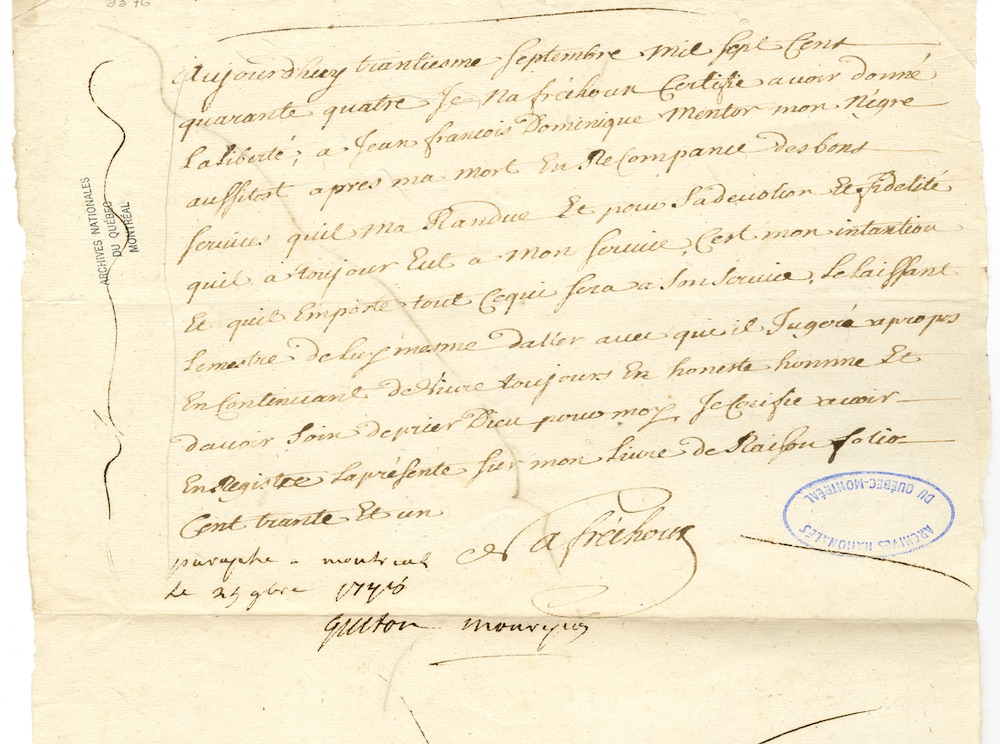 2276
Aujourdhuy trantiesme Septembre Mil Sept Cent
quarante quatre Je Nafréchoux Certifie avoir donné
La Liberté; a Jean francois Dominique Mentor mon Négre
aussitost apres ma mort En ReCompance des bons
Services quil Ma Randue Et pour Sa devotion Et fidelité
quil a toujour Eut a Mon Service, Cest mon intantion
Et quil Emporte tout Cequi sera a Son Service, Le Laissant
Lemestre de Luy mesme daller avec que il Jugera apropos
En Continuant de vivre toujours En honeste homme Et
davoir Soin de prier Dieu pour moy, Je Certifie avoir
En Registré Laprésente Sur mon Livre de Raison folio
Cent trante Et un
Nafréchoux
paraphé a montreal
Le 25 9bre
Guiton Monrepos
ARCHIVES NATIONALES
DU QUÉBEC
MONTRÉAL
ARCHIVES NATIONALES
DU QUÉBEC-MONTRÉAL